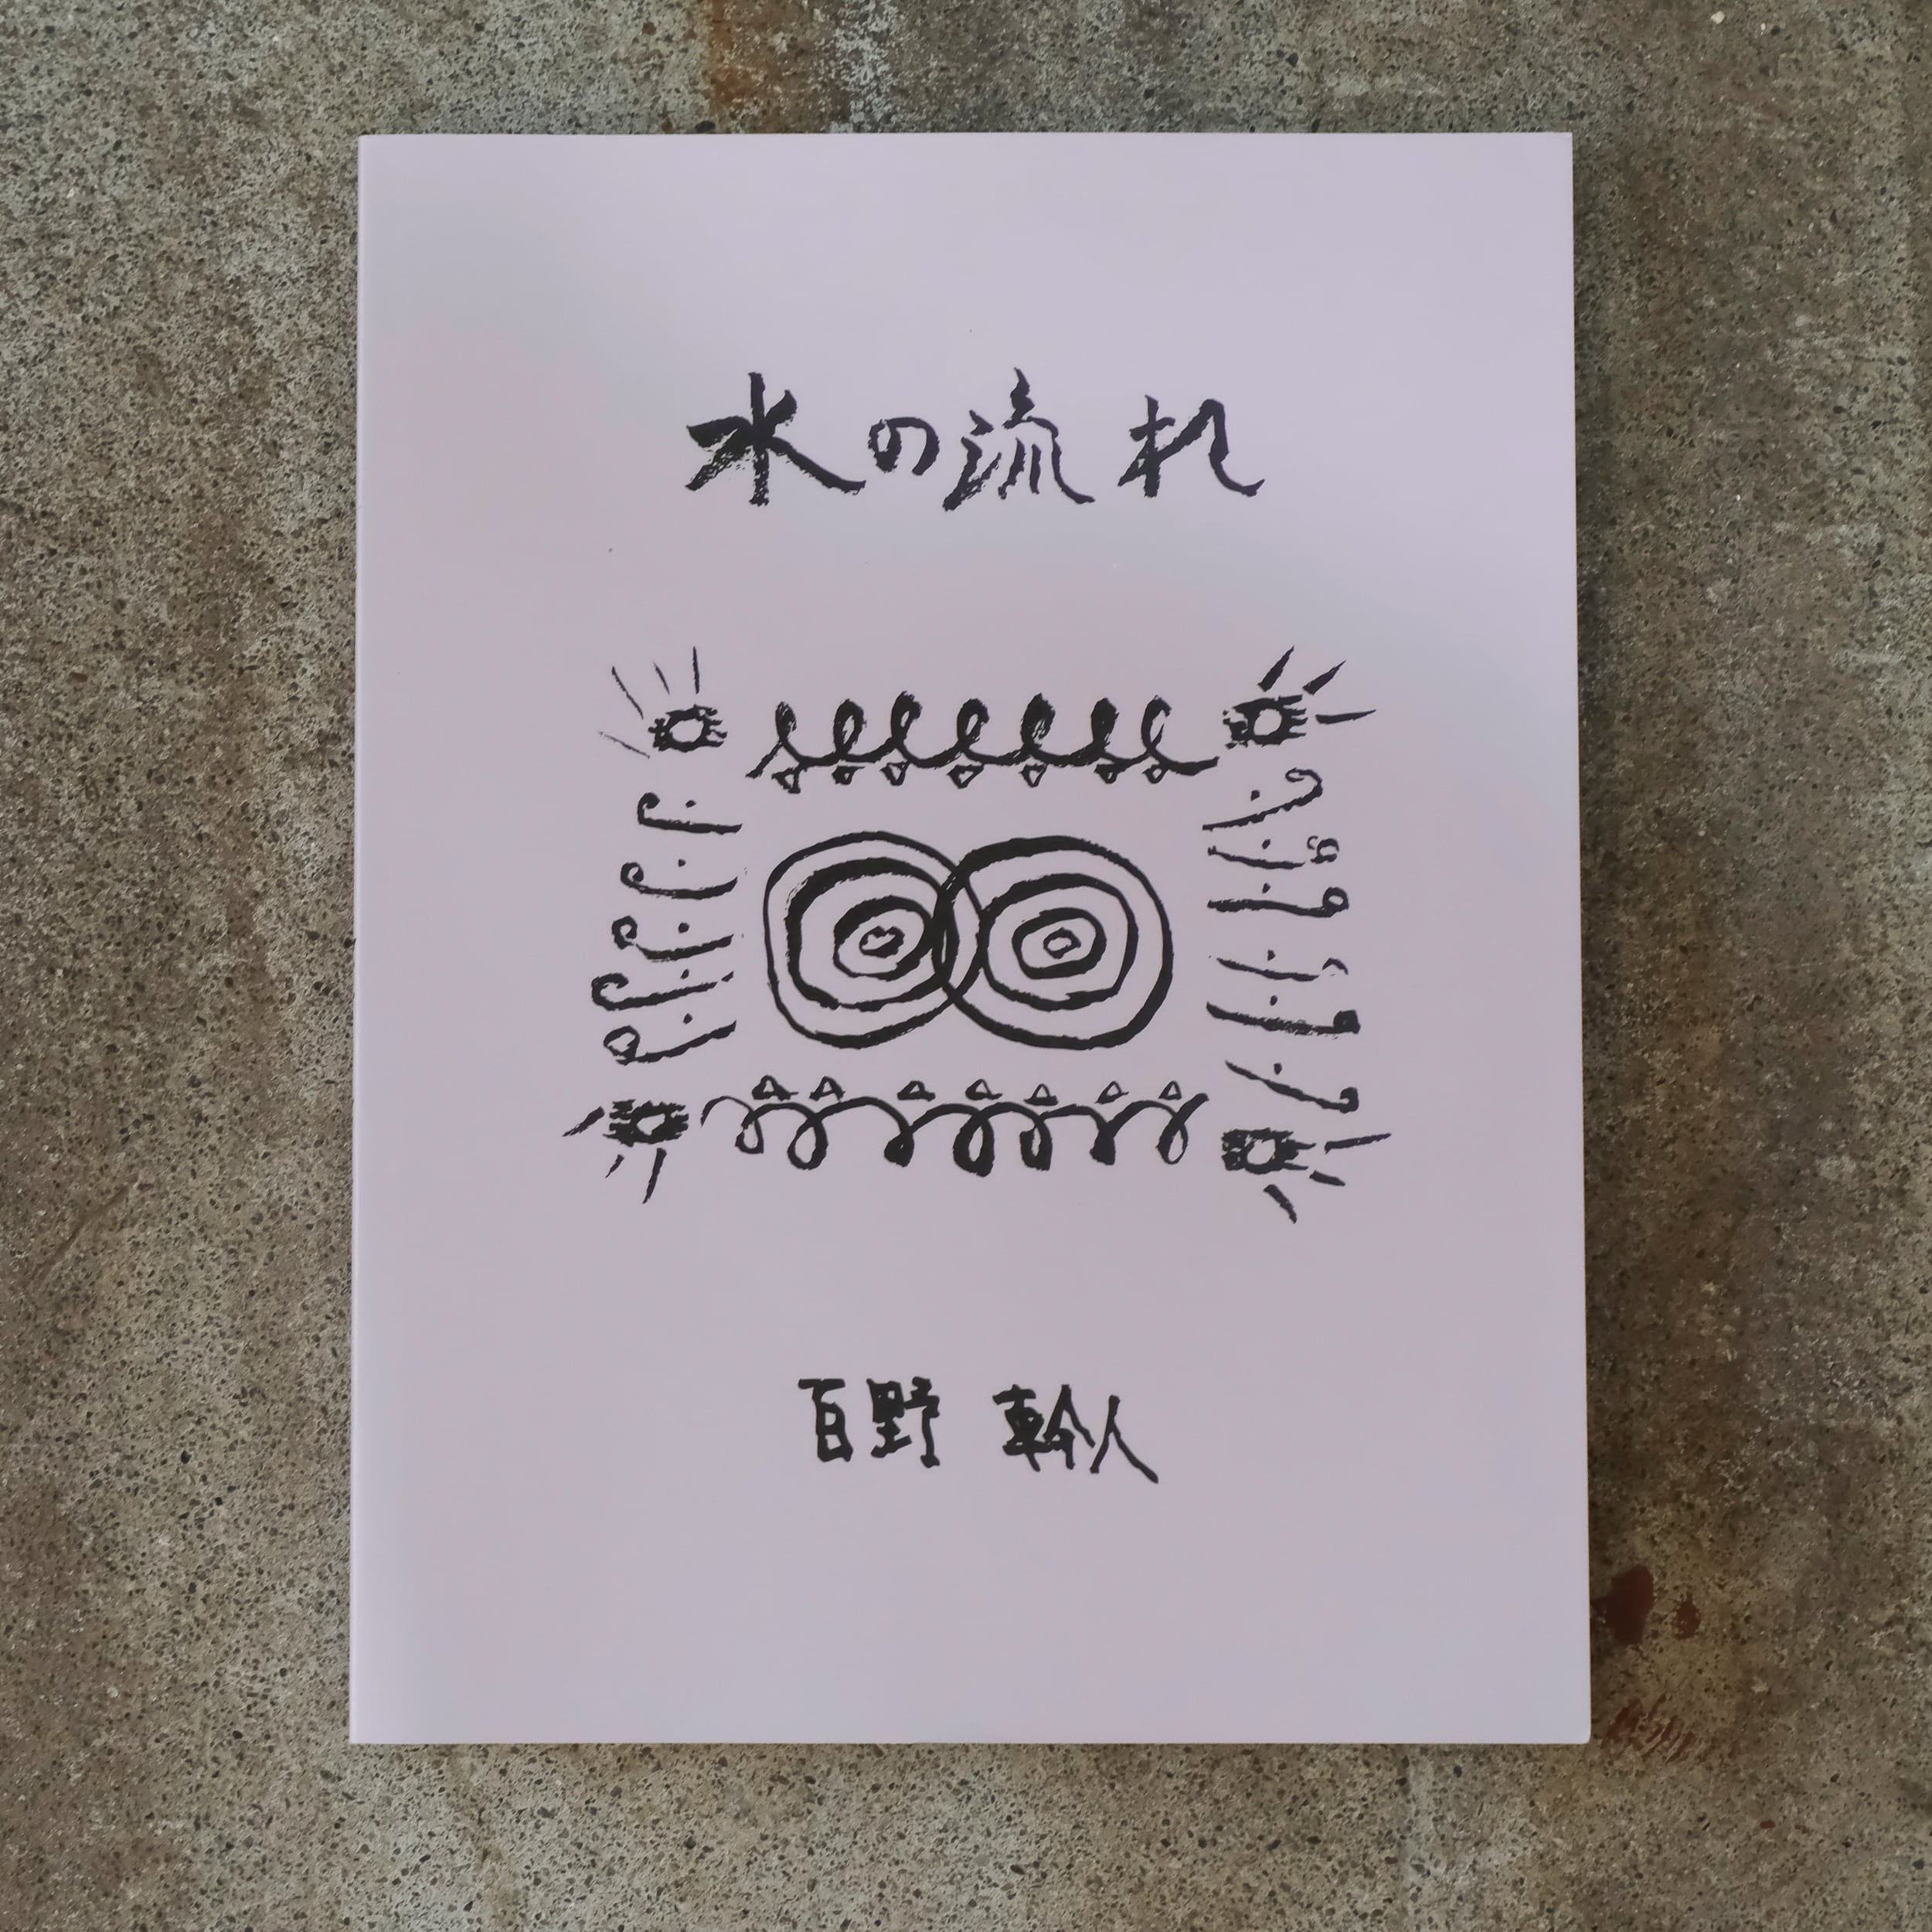 水の流れ
百野 幹人